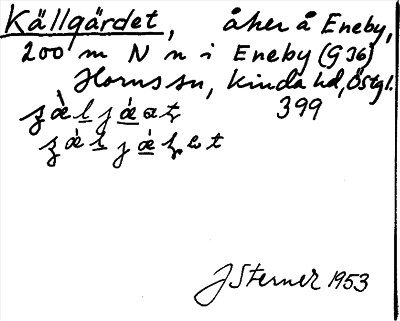 Källgärdet, åker å Eneby,
200 m N n i Eneby (G 36)
Horns sn, Kinda hd, Östgl.
399
J Sterner 1953